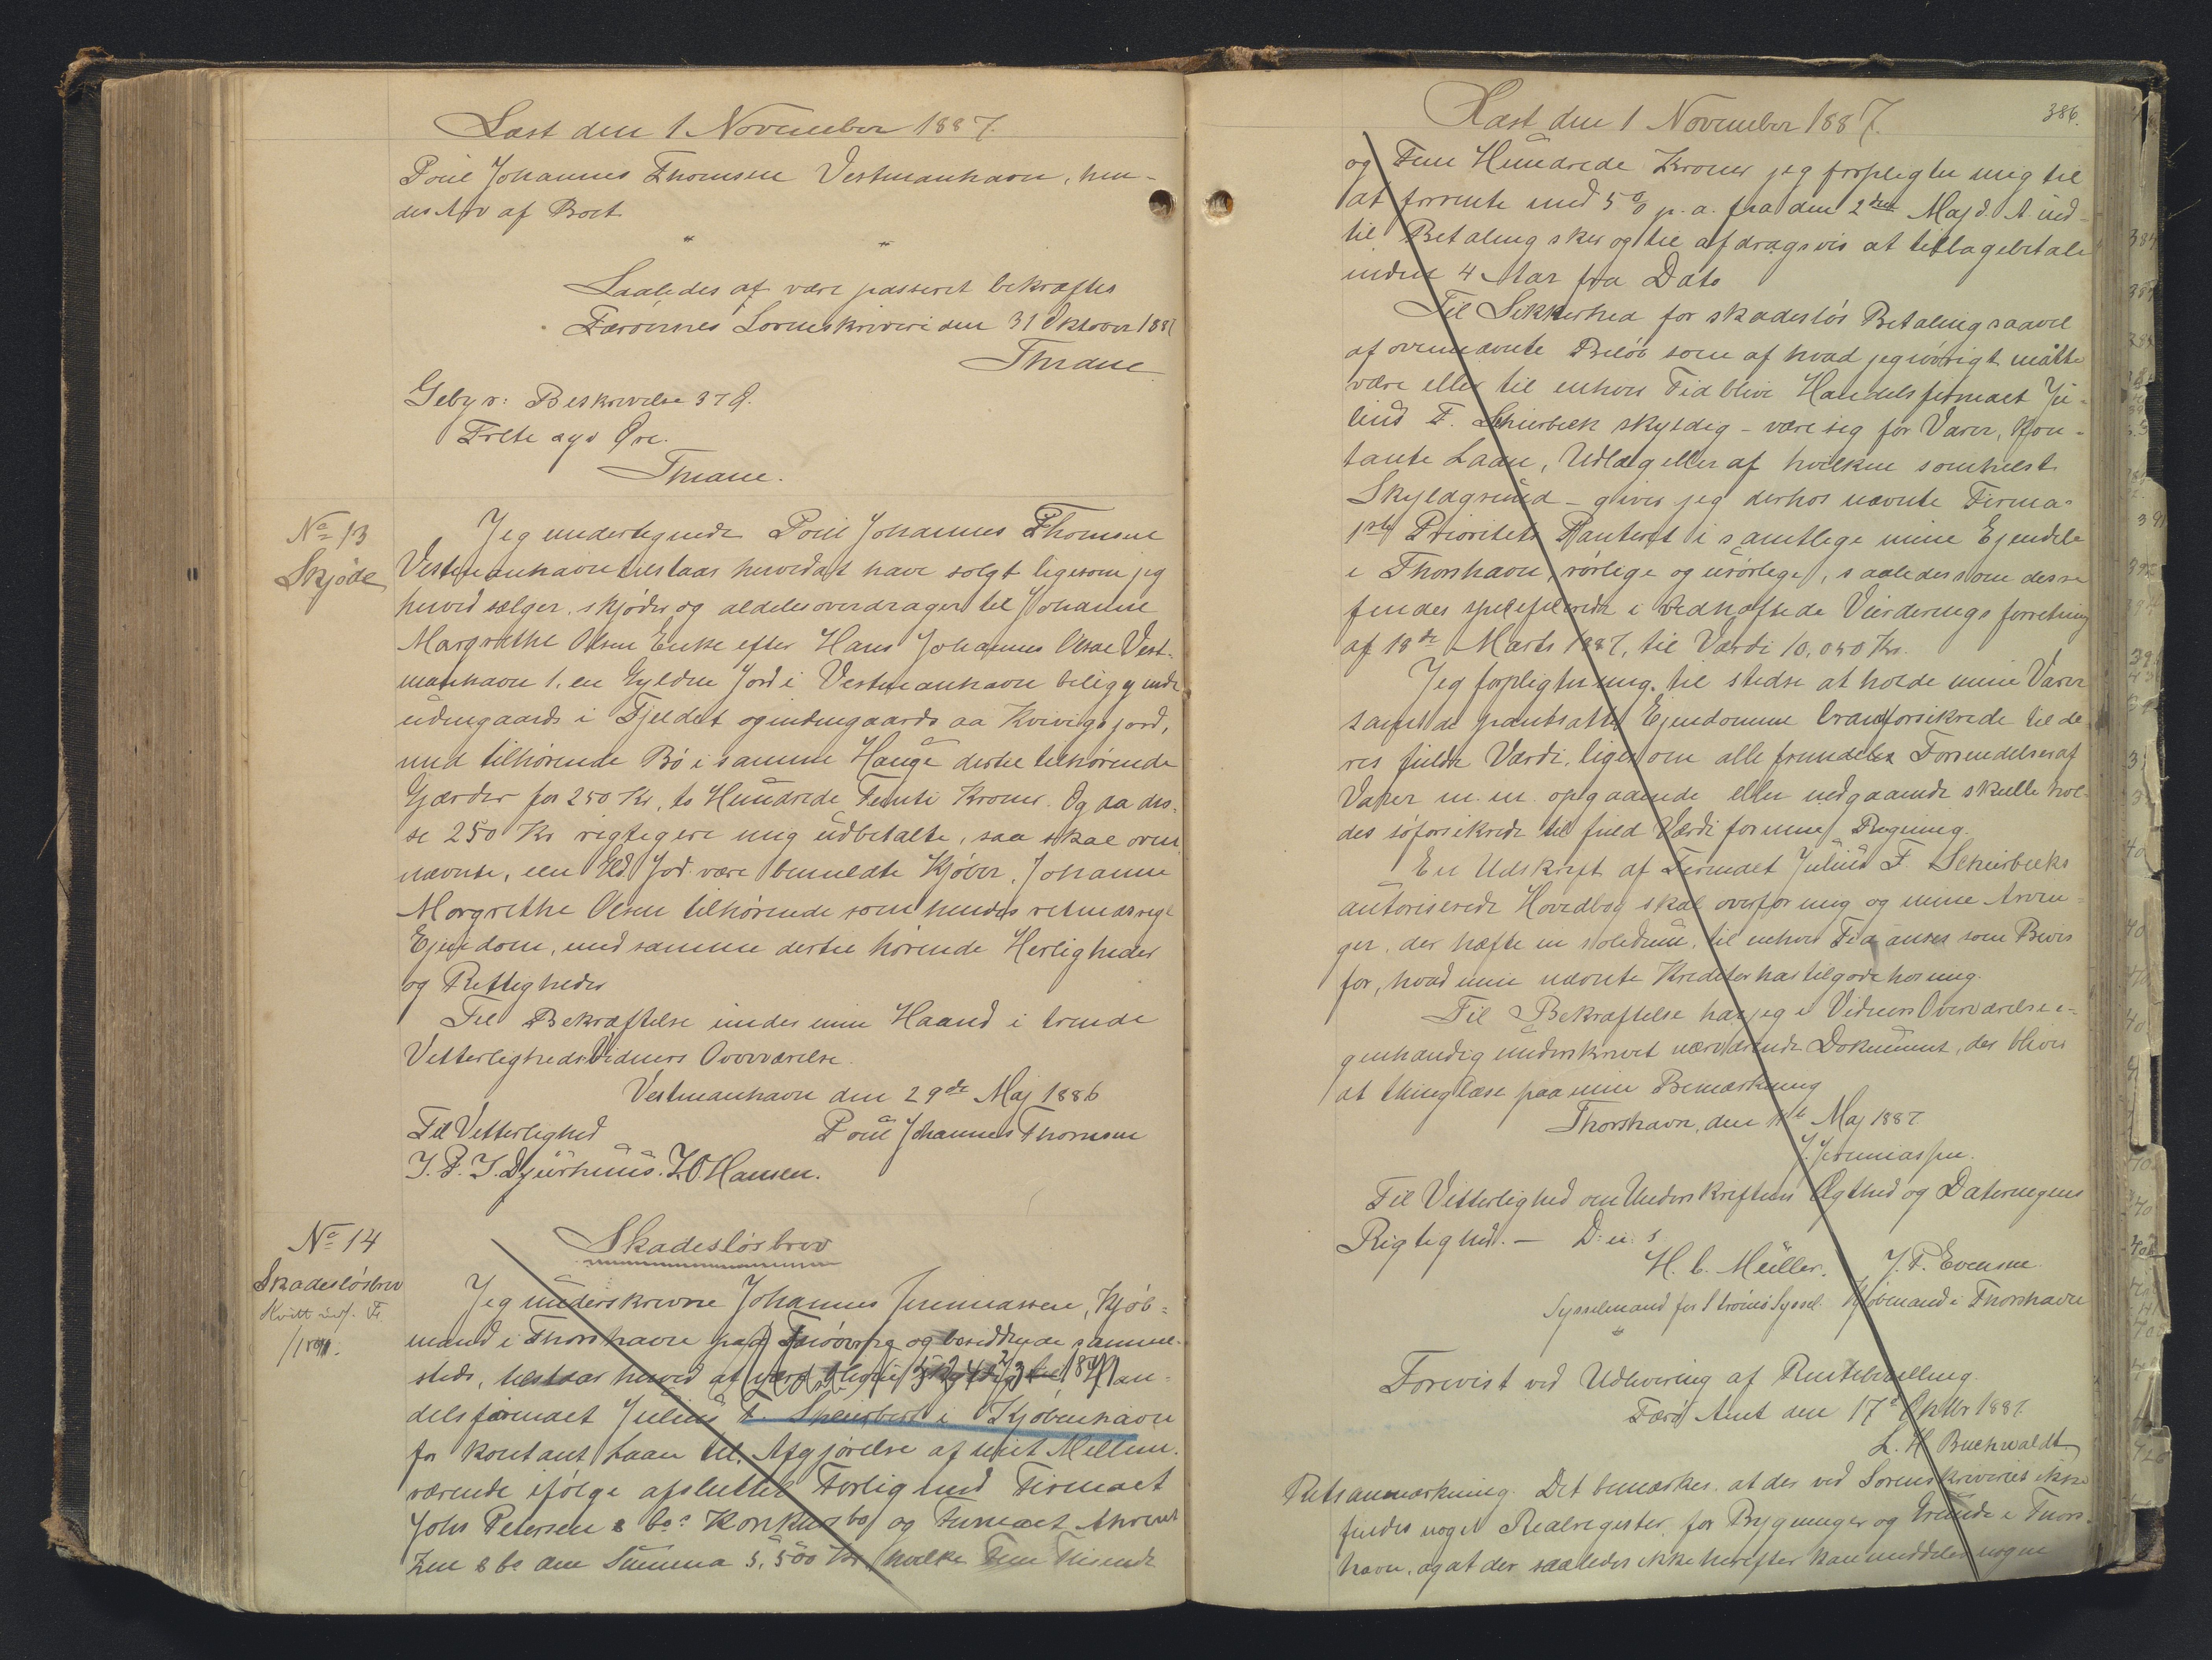 Læst den 1 November 1887.
Poül Johannes Thomsen Vestmanhavn, hen-
des Arv af Boet
" "
Saaledes at være passeret bekræftes
Færöernes Sorenskriveri den 31 Oktober 1887
Thrane
Gebyr: Beskrivelse 37 Ø.
Trete syv Øre.
Thrane.
No 13
Skjöde
Jeg undertegnede Poül Johannes Thomsen
Vestmanhavn tilstaar herved at have solgt ligesom jeg
herved sælger, skjöder og aldeles overdrager til Johanne
Margrethe Olsen Enke efter Hans Johannes Olsen Vest-
manhavn 1. en Gylden Jord i Vestmanhavn beliggende
udengaards i Fjeldet og indengaards aa Kvivigs jord,
med tilhörende Bö i samme Hauge dertil tilhörende
Gjærder for 250 Kr, to Hundrede Femti Kroner. Og da dis-
se 250 Kr rigtig ere mig udbetalte, saa skal oven-
nævnte, een Gld Jord være bemeldte Kjöber, Johanne
Margrethe Olsen tilhörende som hendes retmæssige
Ejendom, med samme dertil hörende Herligheder
og Rettigheder
Til Bekræftelse under min Haand i tvende
Vitterligheds Vidners Overværelse.
Vestmanhavn den 29de Maj 1886
Til Vitterlighed Poül Johannes Thomsen
J. P. J. Djürhuüs. Z. O. Hansen.
No 14
Skadeslösbrev
Kvitt
Skadeslösbrev
Jeg underskrevne Johannes Jeremiassen, Kjöb-
mand i Thorshavn paa Færöerne og bosiddende samme-
steds, tilstaar herved at være bleven skyldig til Han-
delsfirmaet Julius F. Schierbeck i Kjöbenhavn
for kontant Laan til Afgjörelse af mit Mellem-
værende ifölge afsluttet Forlig med Firmaet
Johs Petersen & Co's Konkursbo og Firmaet
& Co den Summa 5,500 Kr, hvilke Fem Tusende
Læst den 1 November 1887.
386.
og Fem Hundrede Kroner jeg forpligter mig til
at forrente med 5 % p. a. fra den 2den Maj d. A. ind-
til Betaling sker og til afdragsvis at tilbagebetale
inden 4 Aar fra Dato
Til Sikkerhed for skadeslös Betaling saavel
af ovennævnte Belöb som af hvad jeg iövrigt måtte
være eller til enhver Tid blive Handelsfirmaet Ju-
lius F. Schierbeck skyldig - være sig for Varer, Kon-
tante Laan, Udlæg eller af hvilken somhelst
Skyldgrund - giver jeg derhos nævnte Firma
1ste Prioritets Panteret i samtlige mine Ejendele
i Thorshavn, rörlige og urörlige, saaledes som desse
findes specificerede i vedhæftede Vurderingsforretning
af 18de Marts 1887, til Værdi 10,050 Kr.
Jeg forpligter mig til stedse at holde mine Varer
samt de pantsatte Ejendomme brandforsikrede til de-
res fulde Værdi, ligesom alle fremdeles Forsendelser af
Varer m. m. opgaaende eller nedgaaende skulle hol-
des söforsikrede til fuld Værdi for min Regning.
En Udskrift af Firmaet Julius F. Schierbecks
autoriserede Hovedbog skal overfor mig og mine Arvin-
ger, der hæfte in solidum, til enhver Tid anses som Bevis
for, hvad min nævnte Kreditor har tilgode hos mig.
Til Bekræftelse har jeg i Vidners Overværelse e-
genhændig underskrevet nærværende Dokument, der bliver
at thinglæse paa min Bemærkning
Thorshavn, den 11te Maj 1887
J. Jeremiassen.
Til Vitterlighed om Underskriftens Ægthed og Dateringens
Rigtighed. — D. u. s
H. C. Müller. J. P. Evensen
Sysselmand for Strömö Syssel. Kjöbmand i Thorshavn
Forevist ved Udlevering af Rentebevilling.
Færö Amt den 17de Oktbr 1887.
L. H. Buchwaldt
Retsanmærkning. Det bemærkes, at der ved Sorenskriveriet ikke
findes noget Realregister for Bygninger og Grunde i Thors-
havn, og at der saaledes ikke herefter kan meddeles nogen